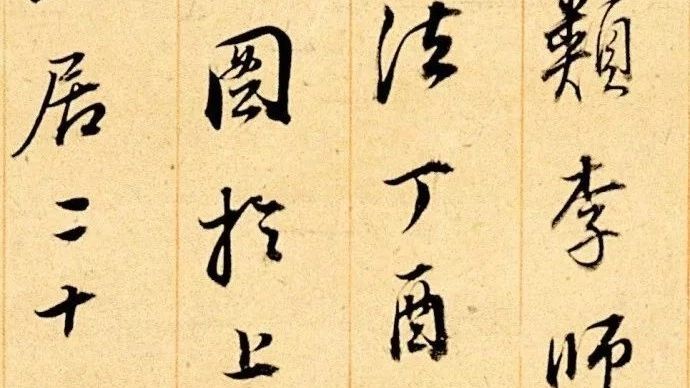 類李師
法丁酉
圖於上
居二十